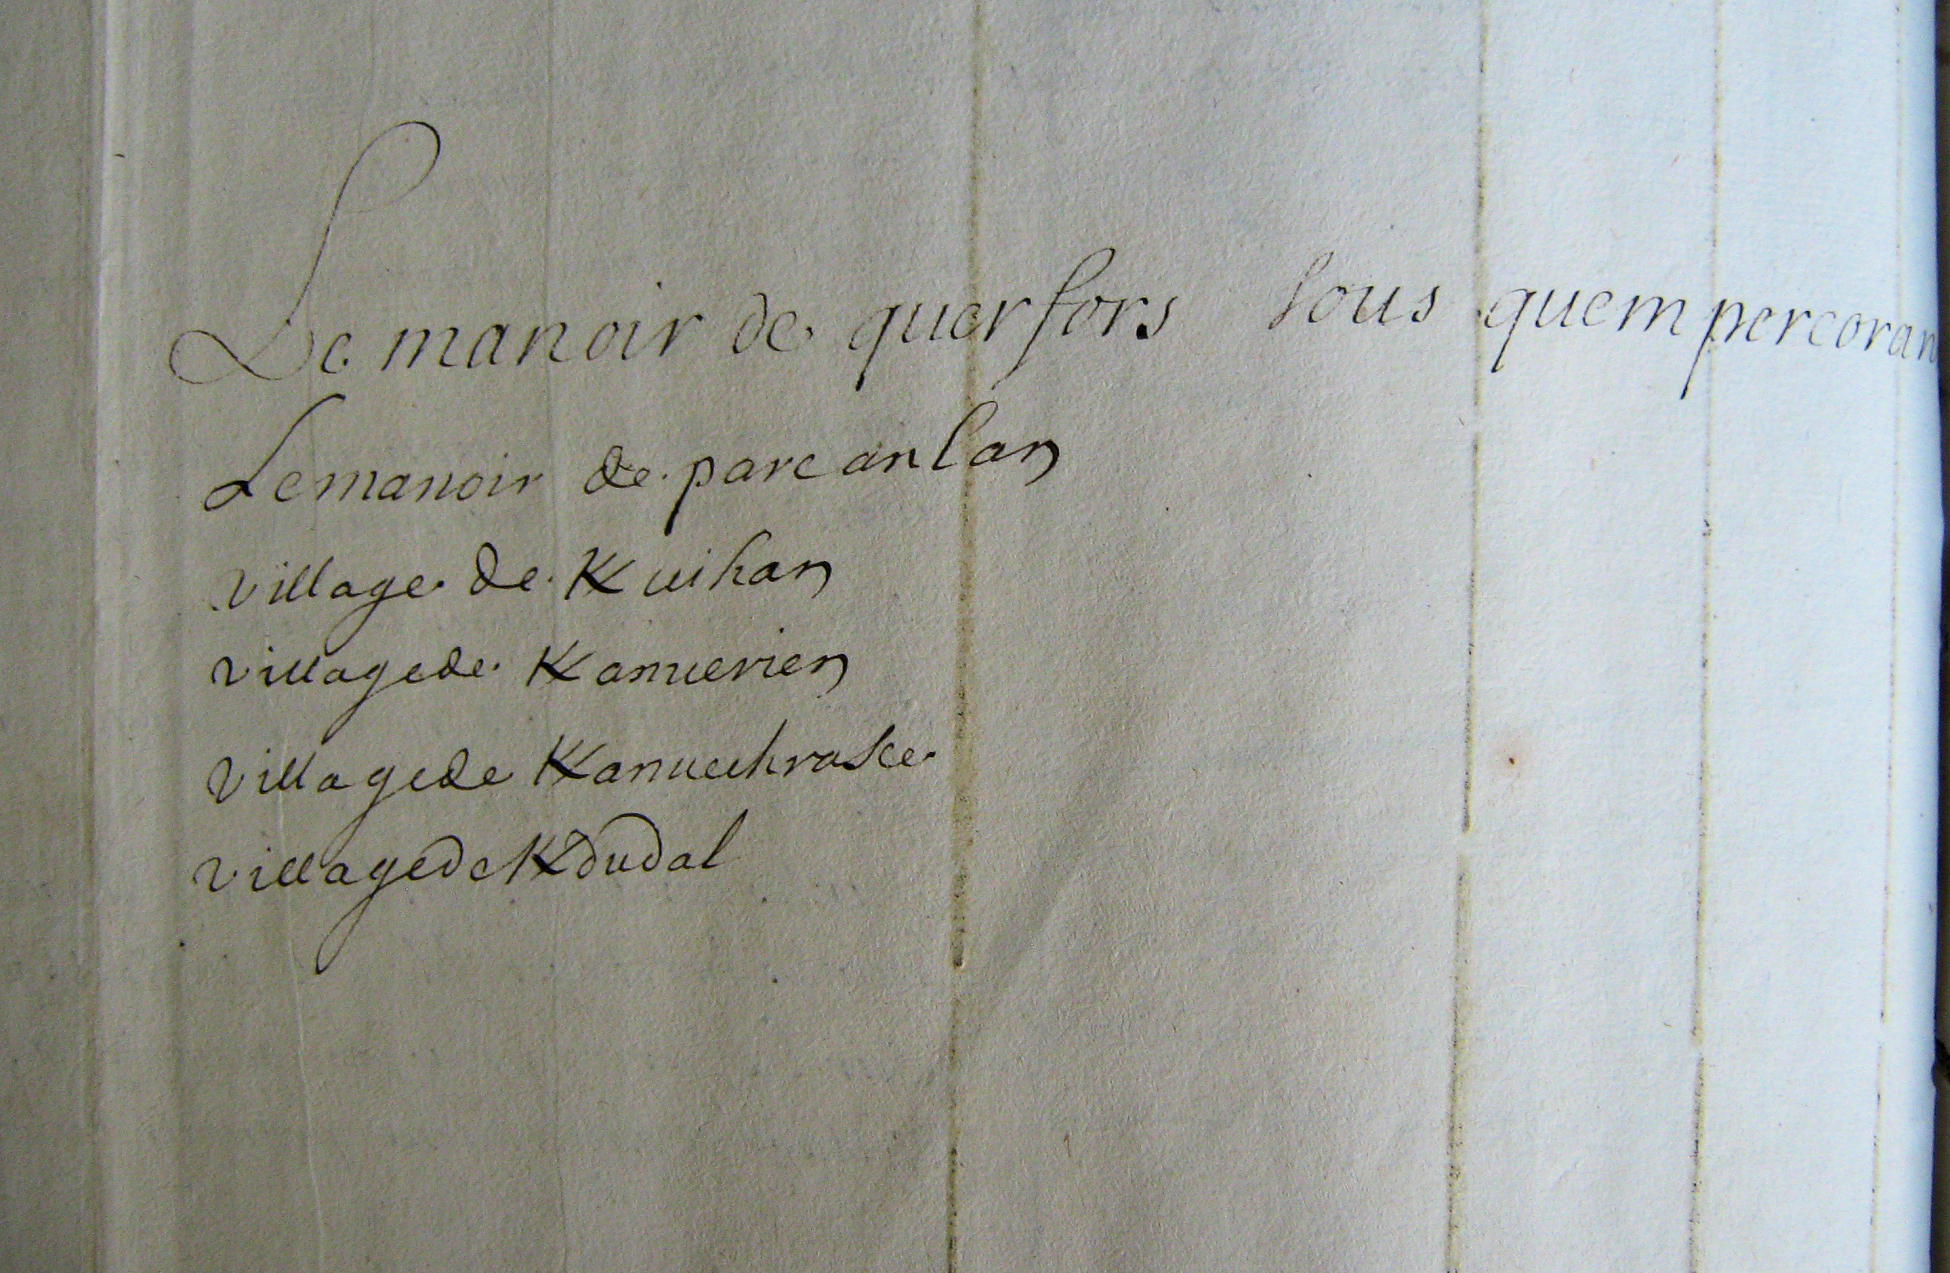 Le manoir de querfors sous quempercoran
Le manoir de parcanlan
village de Kuihan
village de Kanuerien
village de KanuechraSce
village de Kdudal